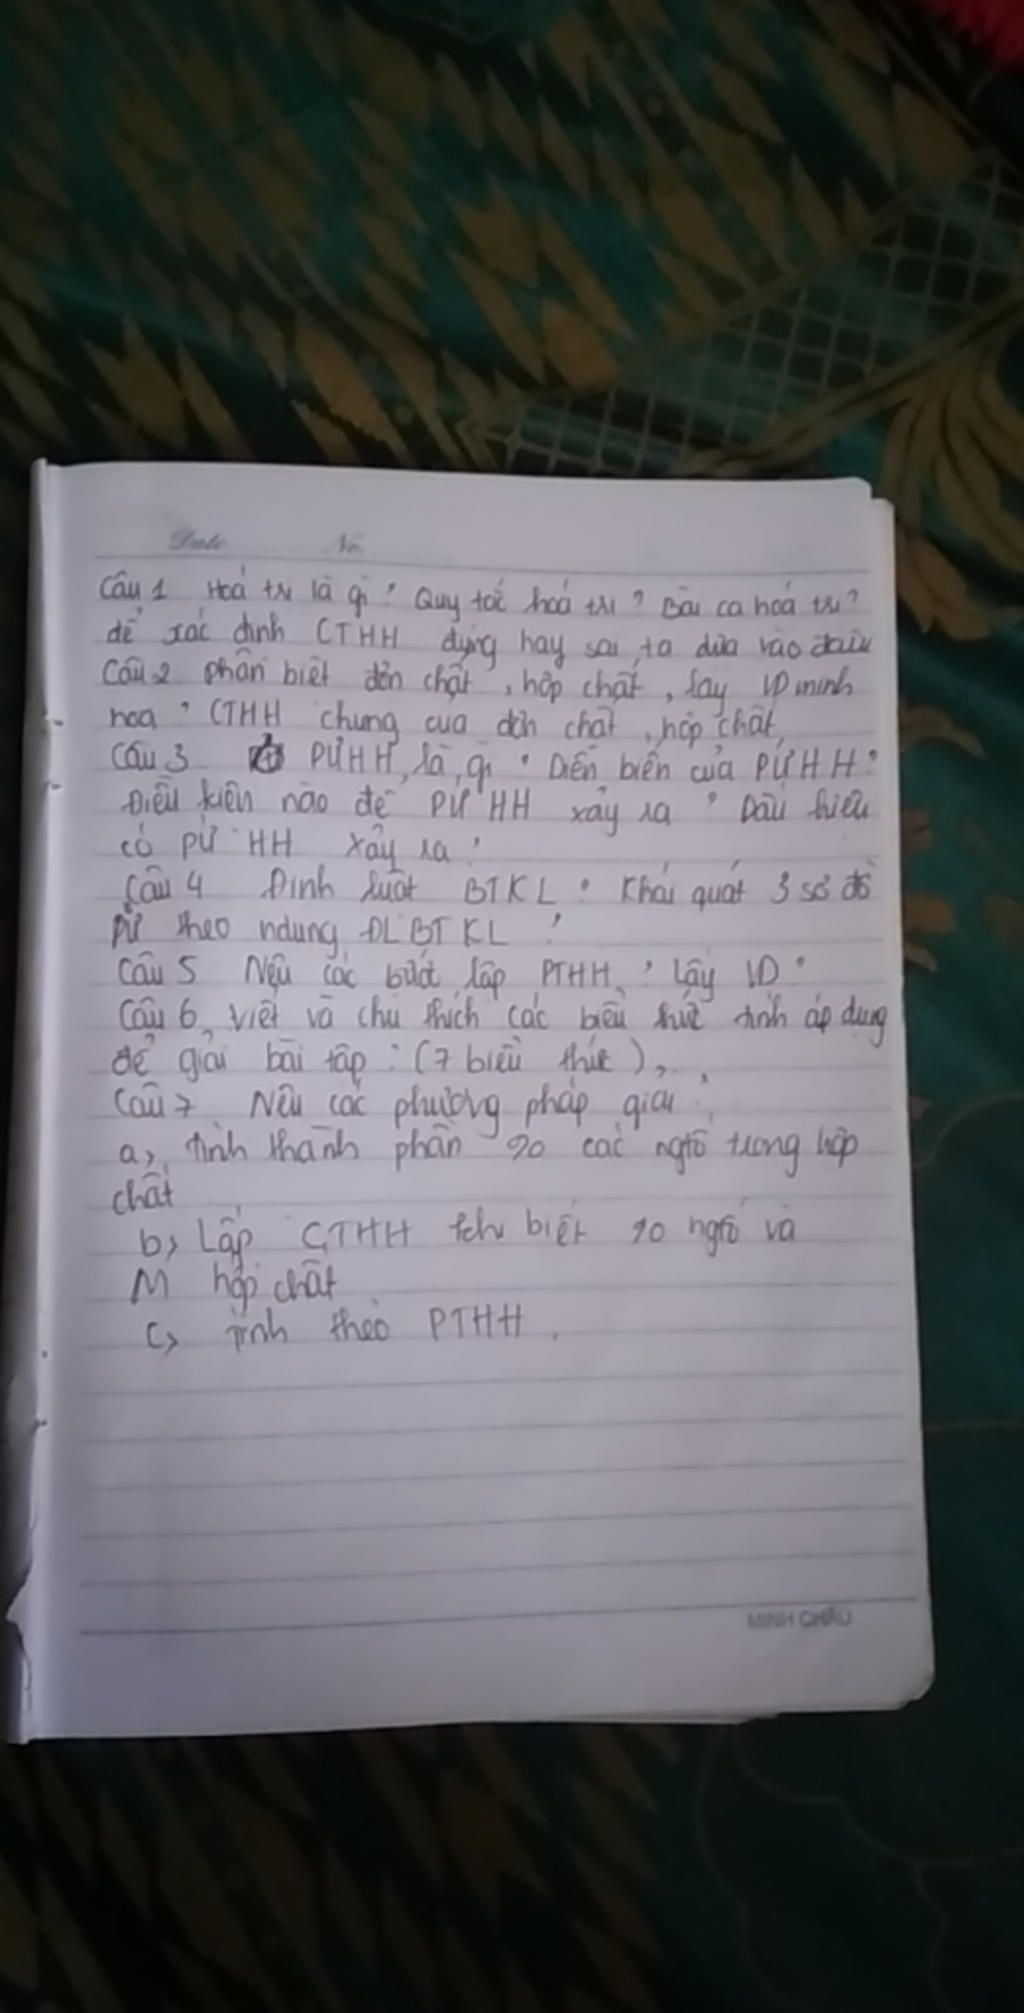 Date No.
Câu 1 Hoá trị là gì? Quy tắc hoá trị? Bài ca hoá trị?
để xác định CTHH đúng hay sai ta dựa vào đâu
Câu 2 phân biệt đơn chất, hợp chất, lấy VD minh
hoạ? CTHH chung của đơn chất, hợp chất
Câu 3 PƯHH là gì? Diễn biến của PƯHH?
Điều kiện nào để PƯ HH xảy ra? Dấu hiệu
có PƯ HH xảy ra?
Câu 4 Định luật BTKL? Khái quát 3 sơ đồ
PƯ theo ndung ĐLBTKL?
Câu 5 Nêu các bước lập PTHH? Lấy VD?
Câu 6, viết và chú thích các biểu thức tính áp dụng
để giải bài tập: (7 biểu thức),
Câu 7 Nêu các phương pháp giải:
a, tính thành phần % các ngtố trong hợp
chất
b, Lập CTHH khi biết % ngtố và
M hợp chất
c, Tính theo PTHH.
MINH CHÂU